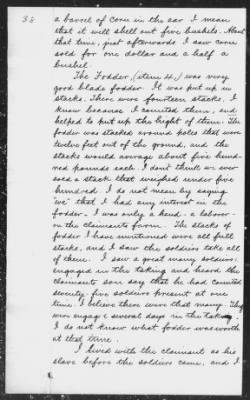 38
a barrel of corn in the ear I mean
that it will shell out five bushels. About
that time, just afterwards I saw corn
sold for one dollar and a half a
bushel.
The Fodder, (item 4.) was very
good blade fodder. It was put up in
stacks. There were fourteen stacks, I
know because I counted them, and
helped to put up the hight of them. The
fodder was stacked around poles that were
twelve feet out of the ground, and the
stacks would average about five hun-
dred pounds each. I don't think we ever
sold a stack that weighed under five
hundred. I do not mean by saying
"we" that I had any interest in the
fodder. I was only a hand - a laborer -
on the claimants farm. The stacks of
fodder I have mentioned were all full
stacks, and I saw the soldiers take all
of them. I saw a great many soldiers
engaged in the taking and heard the
claimants son say that he had counted
seventy-five soldiers present at one
time. I believe there were that many. They
were engaged several days in the taking.
I do not know what fodder was worth
at that time.
I lived with the claimant as his
slave before the soldiers came, and I